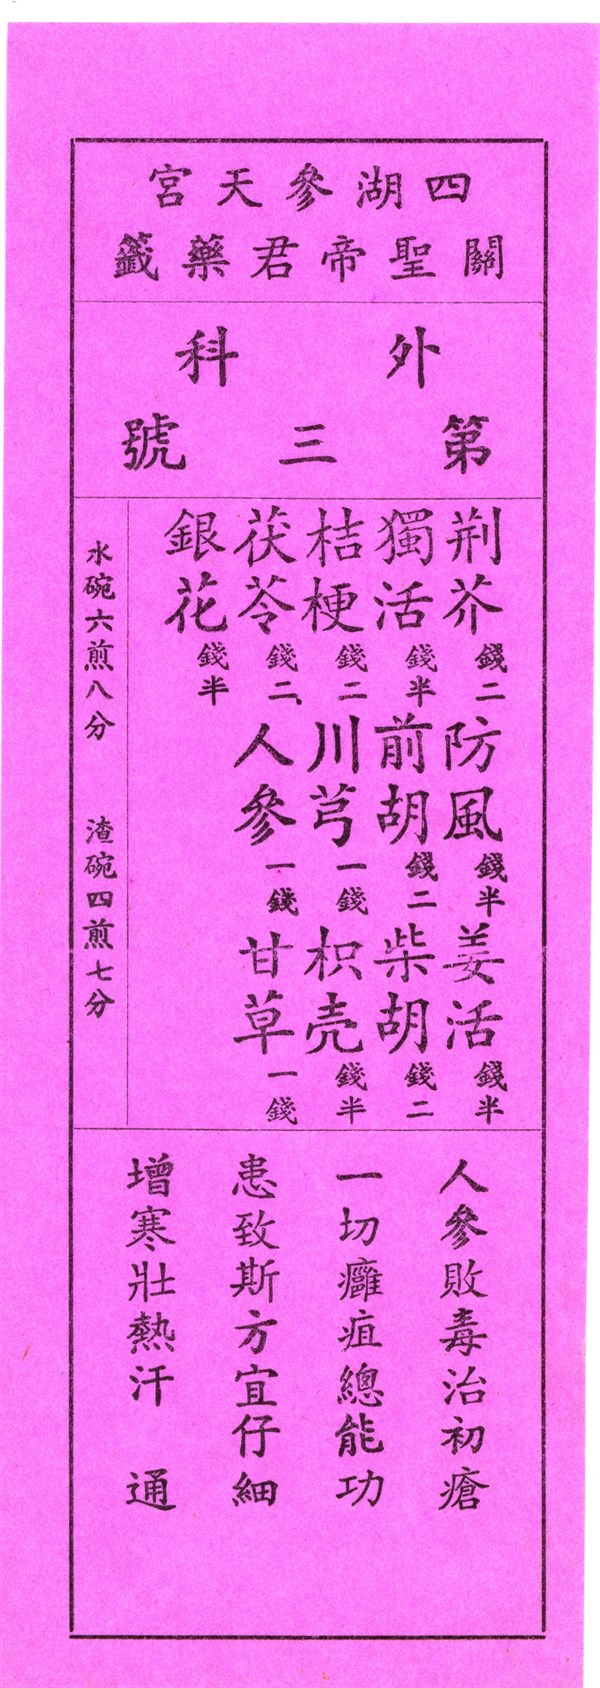 四湖參天宮
關聖帝君藥籤
外科
第三號
荆芥錢二 防風錢半 姜活錢半
獨活錢半 前胡錢二 柴胡錢二
桔梗錢二 川芎一錢 枳壳錢半
茯苓錢二 人參一錢 甘草一錢
銀花錢半
水碗六煎八分 渣碗四煎七分
人參敗毒治初瘡
一切癰疽總能功
患致斯方宜仔細
增寒壯熱汗 通